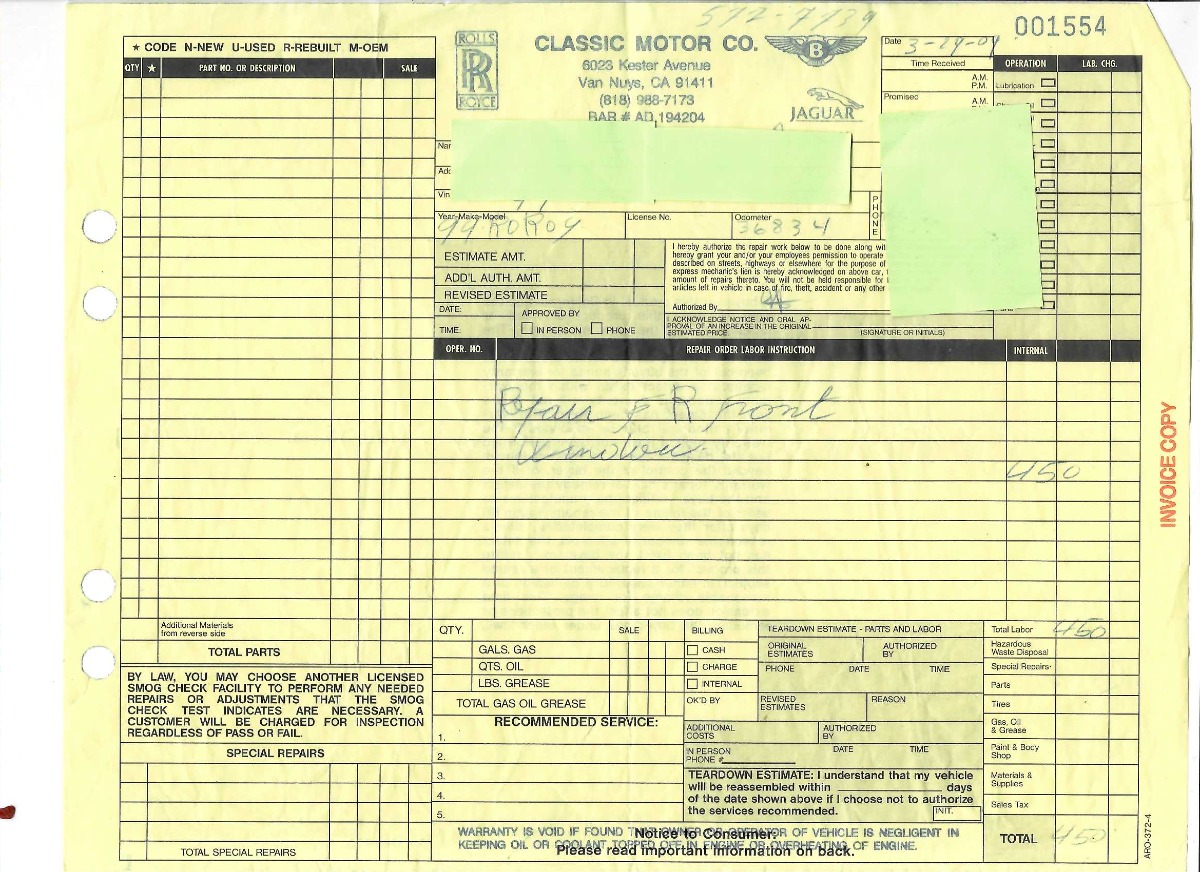 001554
★ CODE N-NEW U-USED R-REBUILT M-OEM
QTY ★ PART NO. OR DESCRIPTION SALE
ROLLS
RR
ROYCE
CLASSIC MOTOR CO.
6023 Kester Avenue
Van Nuys, CA 91411
(818) 988-7173
BAR # AD,194204
B
JAGUAR
Date
Time Received
A.M.
P.M.
Promised
A.M.
OPERATION LAB. CHG.
Lubrication
Year-Make-Model
License No.
Odometer 36834
PHONE
ESTIMATE AMT.
ADD'L AUTH. AMT.
REVISED ESTIMATE
DATE:
TIME.
APPROVED BY
IN PERSON PHONE
I hereby authorize the repair work below to be done along
hereby grant your and/or your employees permission to operate
described on streets, highways or elsewhere for the purpose of
express mechanic's lien is hereby acknowledged on above car,
amount of repairs thereto. You will not be held responsible for
articles left in vehicle in case of fire, theft, accident or any other
Authorized By
I ACKNOWLEDGE NOTICE AND ORAL AP-
PROVAL OF AN INCREASE IN THE ORIGINAL
ESTIMATED PRICE.
(SIGNATURE OR INITIALS)
OPER. NO. REPAIR ORDER LABOR INSTRUCTION INTERNAL
R Front
Window
450
INVOICE COPY
Additional Materials
from reverse side
TOTAL PARTS
BY LAW, YOU MAY CHOOSE ANOTHER LICENSED
SMOG CHECK FACILITY TO PERFORM ANY NEEDED
REPAIRS OR ADJUSTMENTS THAT THE SMOG
CHECK TEST INDICATES ARE NECESSARY. A
CUSTOMER WILL BE CHARGED FOR INSPECTION
REGARDLESS OF PASS OR FAIL.
SPECIAL REPAIRS
TOTAL SPECIAL REPAIRS
QTY. SALE
GALS. GAS
QTS. OIL
LBS. GREASE
TOTAL GAS OIL GREASE
RECOMMENDED SERVICE:
1.
2.
3.
4.
5.
BILLING
CASH
CHARGE
INTERNAL
OK'D BY
TEARDOWN ESTIMATE - PARTS AND LABOR
ORIGINAL
ESTIMATES
AUTHORIZED
BY
PHONE DATE TIME
REVISED
ESTIMATES
REASON
ADDITIONAL
COSTS
AUTHORIZED
BY
IN PERSON
PHONE #
DATE TIME
TEARDOWN ESTIMATE: I understand that my vehicle
will be reassembled within days
of the date shown above if I choose not to authorize
the services recommended.
INIT.
WARRANTY IS VOID IF FOUND THAT OWNER OR OPERATOR OF VEHICLE IS NEGLIGENT IN
KEEPING OIL OR COOLANT TOPPED OFF IN ENGINE OR OVERHEATING OF ENGINE.
Notice to Consumer:
Please read important information on back.
Total Labor 450
Hazardous
Waste Disposal
Special Repairs
Parts
Tires
Gas, Oil
& Grease
Paint & Body
Shop
Materials &
Supplies
Sales Tax
TOTAL 450
ARO-372-4